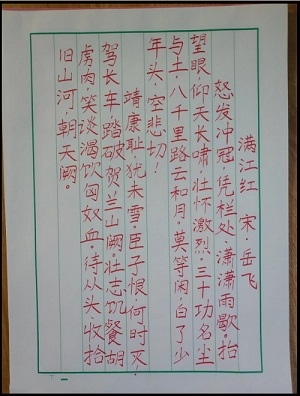 满江红 宋·岳飞
怒发冲冠，凭栏处，潇潇雨歇。抬
望眼，仰天长啸，壮怀激烈。三十功名尘
与土，八千里路云和月。莫等闲，白了少
年头，空悲切！
靖康耻，犹未雪。臣子恨，何时灭！
驾长车，踏破贺兰山阙。壮志饥餐胡
虏肉，笑谈渴饮匈奴血。待从头，收拾
旧山河，朝天阙。